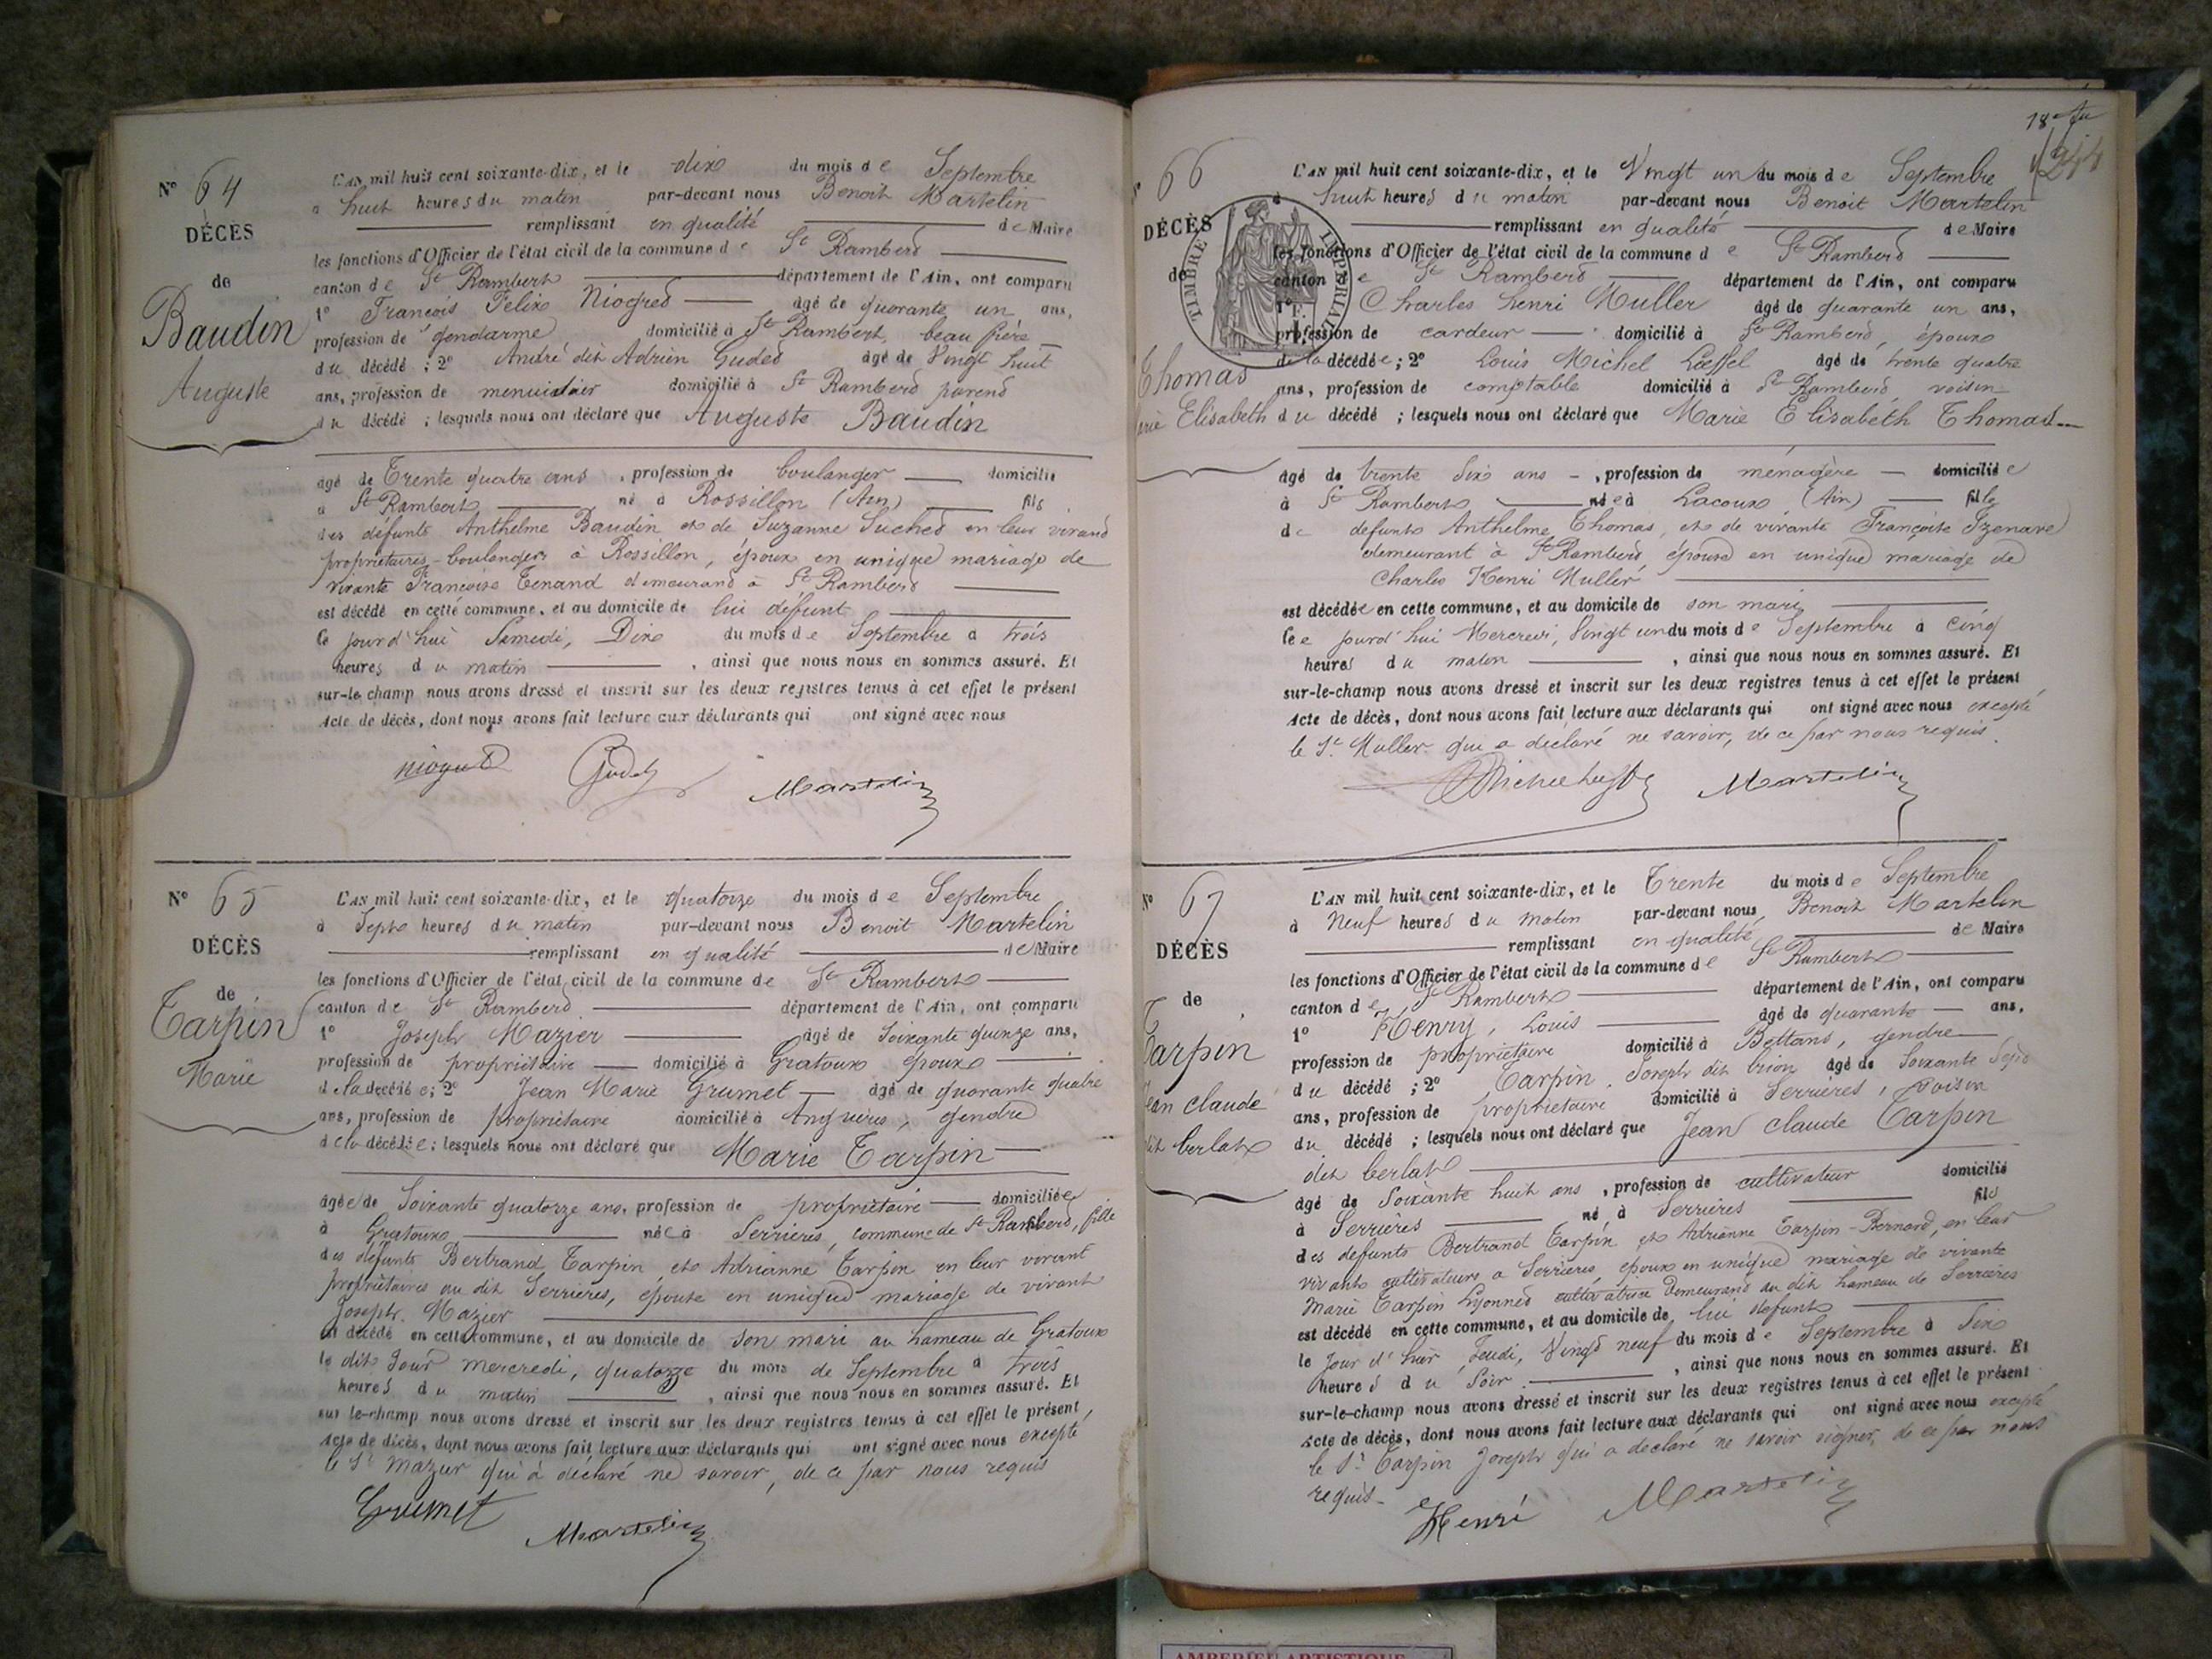 N° 64
DÉCÈS
de
Baudin
Auguste
L'AN mil huit cent soixante-dix, et le dix du mois de Septembre
à huit heures du matin par-devant nous Benoit Martelin
remplissant en qualité de Maire
les fonctions d'Officier de l'état civil de la commune de St Rambert
canton de St Rambert département de l'Ain, ont comparu
1° François Felix Niogret âgé de quarante un ans,
profession de gendarme domicilié à St Rambert, beau frère
du décédé ; 2° André dit Adrien Gudet âgé de Vingt huit
ans, profession de menuisier domicilié à St Rambert parent
du décédé ; lesquels nous ont déclaré que Auguste Baudin
âgé de Trente quatre ans, profession de boulanger domicilié
à St Rambert né à Rossillon (Ain) fils
des défunts Anthelme Baudin et de Suzanne Suchet en leur vivant
propriétaires-boulangers à Rossillon, époux en unique mariage de
vivante Françoise Tenand demeurand à St Rambert
est décédé en cette commune, et au domicile de lui défunt
le jourd'hui Samedi, Dix du mois de Septembre à trois
heures du matin, ainsi que nous nous en sommes assuré. Et
sur-le champ nous avons dressé et inscrit sur les deux registres tenus à cet effet le présent
Acte de décès, dont nous avons fait lecture aux déclarants qui ont signé avec nous
niogret Gudet Martelin
N° 65
DÉCÈS
de
Tarpin
Marie
L'AN mil huit cent soixante-dix, et le quatorze du mois de Septembre
à Sept heures du matin par-devant nous Benoit Martelin
remplissant en qualité de Maire
les fonctions d'Officier de l'état civil de la commune de St Rambert
canton de St Rambert département de l'Ain, ont comparu
1° Joseph Mazier âgé de Soixante quinze ans,
profession de propriétaire domicilié à Gratoux époux
de la décédée ; 2° Jean Marie Grumet âgé de quarante quatre
ans, profession de propriétaire domicilié à Angrières, gendre
de la décédée ; lesquels nous ont déclaré que Marie Tarpin
âgée de Soixante quatorze ans, profession de propriétaire domiciliée
à Gratoux née à Serrières, commune de St Rambert, fille
des défunts Bertrand Tarpin et Adrianne Tarpin en leur vivant
propriétaires au dit Serrières, épouse en unique mariage de vivant
Joseph Mazier
est décédé en cette commune, et au domicile de son mari au hameau de Gratoux
le dit Jour mercredi, quatorze du mois de Septembre à trois
heures du matin, ainsi que nous nous en sommes assuré. Et
sur le-champ nous avons dressé et inscrit sur les deux registres tenus à cet effet le présent
Acte de décès, dont nous avons fait lecture aux déclarants qui ont signé avec nous excepté
le Sr Mazier qui à déclaré ne savoir, de ce par nous requis
Grumet Martelin
18e
244
66
DÉCÈS
de
TIMBRE IMPERIAL
Thomas
arie Elisabeth
L'AN mil huit cent soixante-dix, et le Vingt un du mois de Septembre
à huit heures du matin par-devant nous Benoit Martelin
remplissant en qualité de Maire
les fonctions d'Officier de l'état civil de la commune de St Rambert
canton de St Rambert département de l'Ain, ont comparu
1° Charles henri Muller âgé de quarante un ans,
profession de cardeur domicilié à St Rambert, époux
de la décédée ; 2° Louis Michel Lœffel âgé de trente quatre
ans, profession de comptable domicilié à St Rambert, voisin
du décédé ; lesquels nous ont déclaré que Marie Elisabeth Thomas
âgé de trente six ans, profession de ménagère domiciliée
à St Rambert née à Lacoux (Ain) fille
de defunt Anthelme Thomas, et de vivante Françoise Izenave
demeurant à St Rambert épouse en unique mariage de
Charles Henri Muller
est décédée en cette commune, et au domicile de son mari
le jourd'hui Mercredi, Vingt un du mois de Septembre à cinq
heures du matin, ainsi que nous nous en sommes assuré. Et
sur-le-champ nous avons dressé et inscrit sur les deux registres tenus à cet effet le présent
Acte de décès, dont nous avons fait lecture aux déclarants qui ont signé avec nous excepté
le Sr Muller qui a déclaré ne savoir, de ce par nous requis.
Martelin
N° 67
DÉCÈS
de
Tarpin
Jean claude
dit berlat
L'AN mil huit cent soixante-dix, et le Trente du mois de Septembre
à Neuf heures du matin par-devant nous Benoit Martelin
remplissant en qualité de Maire
les fonctions d'Officier de l'état civil de la commune de St Rambert
canton de St Rambert département de l'Ain, ont comparu
1° Henry, Louis âgé de quarante ans,
profession de propriétaire domicilié à Bettant, gendre
du décédé ; 2° Tarpin, Joseph dit brion âgé de Soixante Sept
ans, profession de propriétaire domicilié à Serrières, voisin
du décédé ; lesquels nous ont déclaré que Jean claude Tarpin
dit berlat
âgé de Soixante huit ans, profession de cultivateur domicilié
à Serrières né à Serrières fils
des defunts Bertrand Tarpin et Adrianne Tarpin-Bernard, en leur
vivants cultivateurs a Serrières, époux en unique mariage de vivante
Marie Tarpin Lyonnet cultivatrice demeurand au dit hameau de Serrières
est décédé en cette commune, et au domicile de lui défunt
le Jour d'hier Jeudi, Vingt neuf du mois de Septembre à Six
heures du Soir, ainsi que nous nous en sommes assuré. Et
sur-le-champ nous avons dressé et inscrit sur les deux registres tenus à cet effet le présent
Acte de décès, dont nous avons fait lecture aux déclarants qui ont signé avec nous excepté
le Sr Tarpin Joseph qui a declaré ne savoir signer, de ce par nous
requis
Henri Martelin
AMBERIEU ARTISTIQUE